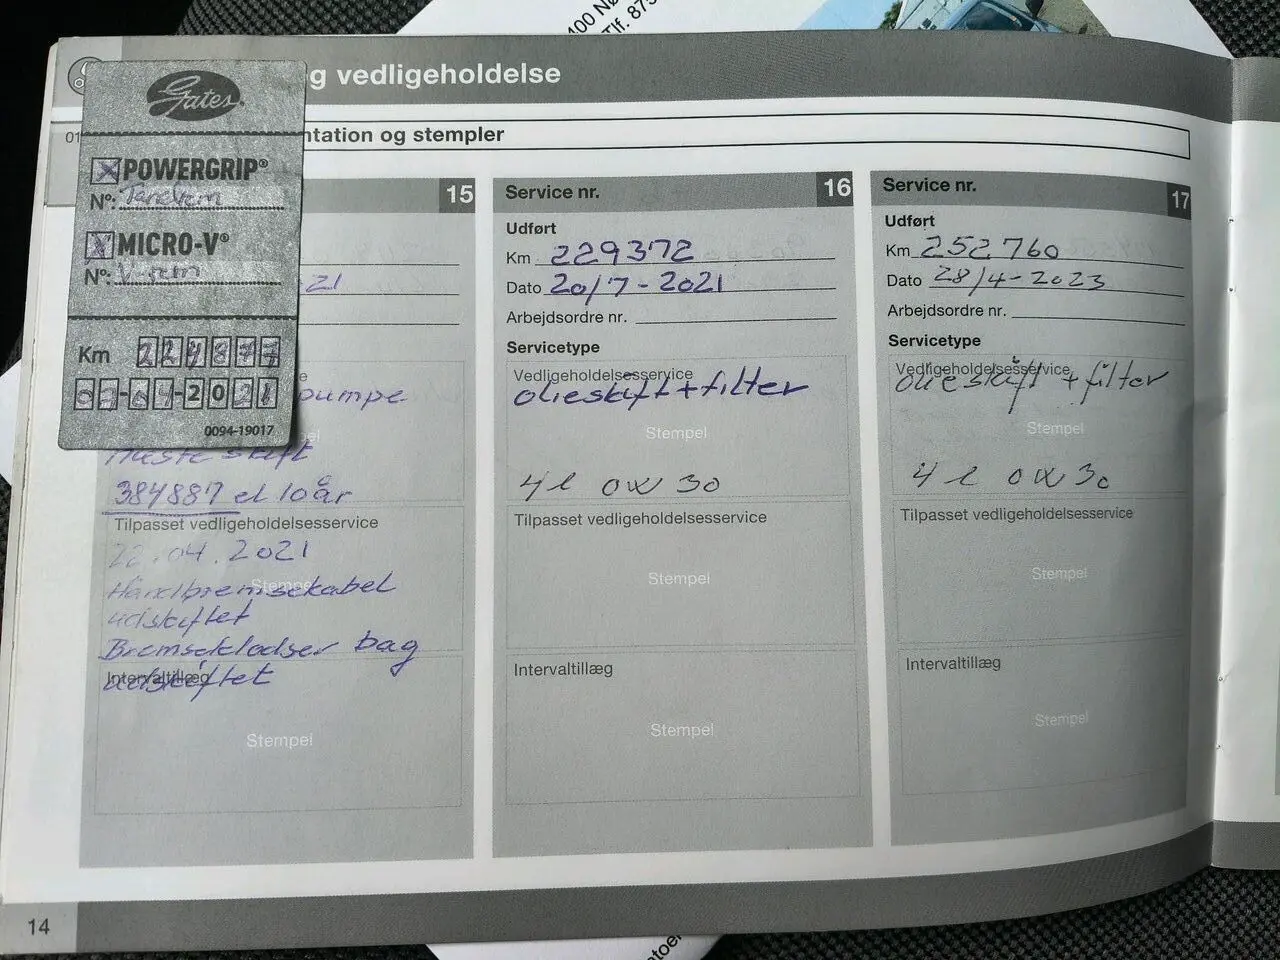 100 Nø
Tlf. 873
g vedligeholdelse
01
ntation og stempler
Gates
POWERGRIP®
Nº: Tandrem
MICRO-V®
Nº: V-rem
Km 224877
2021
0094-19017
15
21
e
pumpe
Næste skift
384887 el 10 år
Tilpasset vedligeholdelsesservice
22.04.2021
Stempel
Håndbremsekabel
udskiftet
Bremseklodser bag
Intervaltillæg
udskiftet
Stempel
Service nr. 16
Udført
Km 229372
Dato 20/7-2021
Arbejdsordre nr.
Servicetype
Vedligeholdelsesservice
olieskift + filter
Stempel
4 l 0W 30
Tilpasset vedligeholdelsesservice
Stempel
Intervaltillæg
Stempel
Service nr. 17
Udført
Km 252760
Dato 28/4-2023
Arbejdsordre nr.
Servicetype
Vedligeholdelsesservice
olieskift + filter
Stempel
4 l 0W 30
Tilpasset vedligeholdelsesservice
Stempel
Intervaltillæg
Stempel
14
stoer